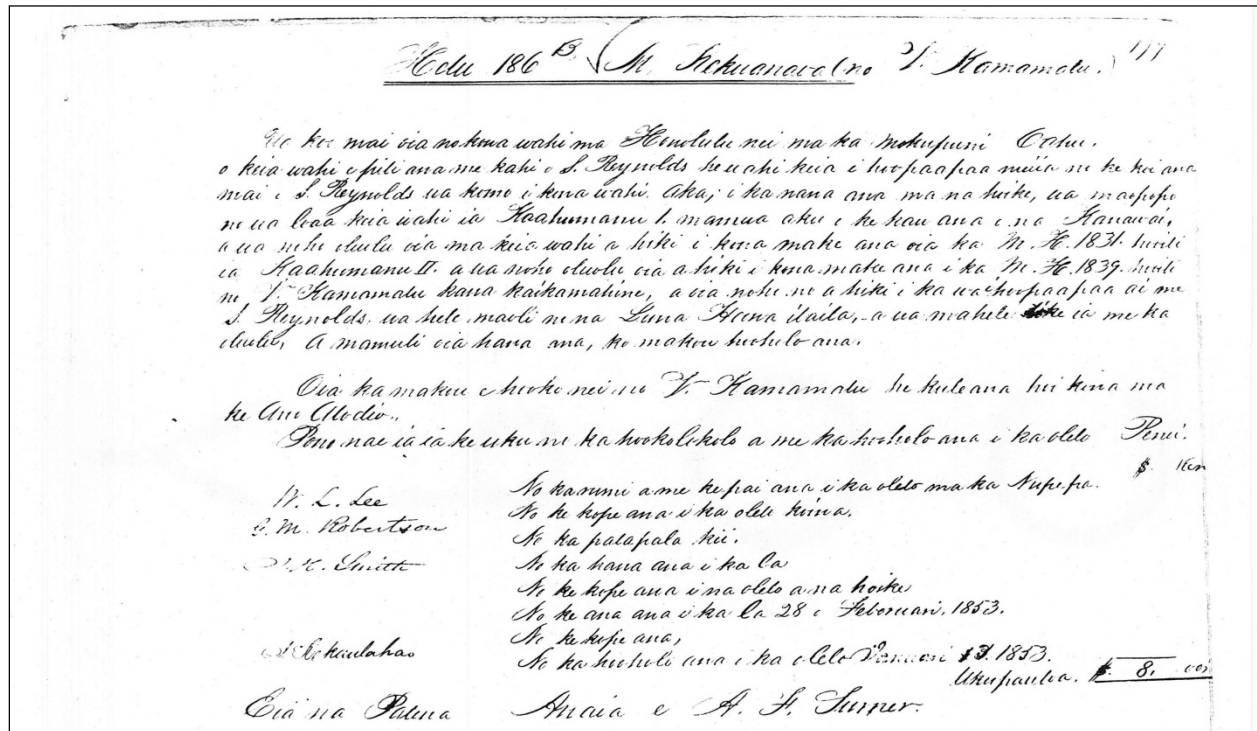 Helu 186 B M. Kekuanaoa (no V. Kamamalu.) 177
Ua koi mai oia no kona wahi ma Honolulu nei ma ka Mokupuni Oahu.
o keia wahi e pili ana me kahi o S. Reynolds he wahi keia i hoopaapaa nuiia no ke koi ana
mai o S. Reynolds ua komo i kona wahi. Aka, i ka nana ana ma na hoike, ua maopopo
no ua loaa keia wahi ia Kaahumanu 1. mamua aku o ke kau ana o na Kanawai,
a ua noho oluolu oia ma keia wahi a hiki i kona make ana oia ka M. H. 1831. hooili
ia Kaahumanu II. a ua noho oluolu oia a hiki i kona make ana i ka M. H. 1839. hooili
no V. Kamamalu kana kaikamahine, a oia noho no a hiki i ka wa i hoopaapaa ai me
S. Reynolds, ua hele maoli no na Luna Hoona ilaila, a ua mahele ia me ka
oluolu, A mamuli oia hana ana, ko makou hooholo ana.
Oia ka makou e hooko nei no V. Kamamalu he kuleana hoi kona ma
ke Ano Alodio.
Pono nae ia ia ke uku no ka hookolokolo a me ka hooholo ana i ka olelo Penei.
$. Ken
W. L. Lee No ka rumi a me ke pai ana i ka olelo ma ka Nupepa.
G. M. Robertson No ke kope ana i ka olelo kinoa.
No ka palapala kii.
Smith No ka hana ana i ka la
No ke kope ana i na olelo a na hoike
No ke ana ana i ka la 28 o Feberuari. 1853.
No ke kope ana,
Kekaulahao No ka hooholo ana i ka olelo Ianuari 13. 1853.
Uku pauloa. $. 8. 00
Eia na Palena Anaia e A. F. Turner.